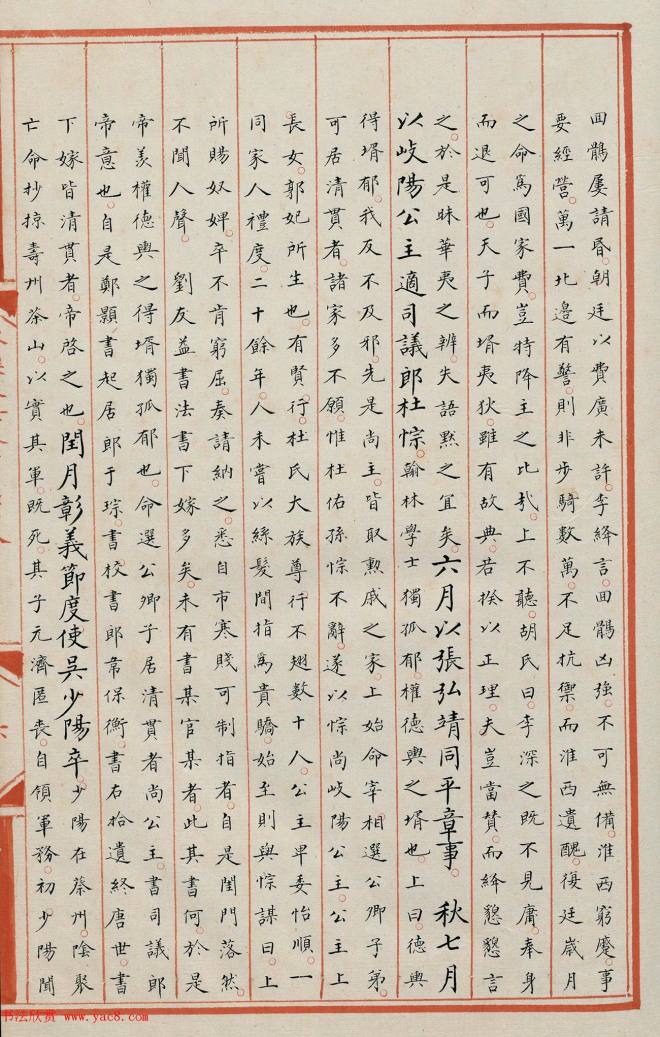 回鶻屢請昏。朝廷以費廣未許。李絳言。回鶻凶強。不可無備。淮西窮蹙。事
要經營。萬一北邊有警。則非步騎數萬。不足抗禦。而淮西遺醜。復延歲月
之命。為國家費。豈特降主之比哉。上不聽。胡氏曰。李深之既不見庸。奉身
而退可也。天子而壻夷狄。雖有故典。若揆以正理。夫豈當贊。而絳懇懇言
之。於是昧華夷之辨。失語默之宜矣。六月以張弘靖同平章事。 秋七月
以岐陽公主適司議郎杜悰。翰林學士獨孤郁。權德輿之壻也。上曰。德輿
得壻郁。我反不及邪。先是尚主。皆取勲戚之家。上始命宰相選公卿子弟。
可居清貫者。諸家多不願。惟杜佑孫悰不辭。遂以悰尚岐陽公主。公主上
長女。郭妃所生也。有賢行。杜氏大族尊行不翅數十人。公主卑委怡順。一
同家人禮度。二十餘年。人未嘗以絲髮間指為貴驕。始至則與悰謀曰。上
所賜奴婢。卒不肯窮屈。奏請納之。悉自市寒賤可制指者。自是閨門落然。
不聞人聲。 劉友益書法書下嫁多矣。未有書某官某者。此其書何。於是
帝羨權德輿之得壻獨孤郁也。命選公卿子居清貫者尚公主。書司議郎
帝意也。自是鄭顥書起居郎于琮。書校書郎韋保衡。書右拾遺終唐世。書
下嫁皆清貫者。帝啓之也。閏月彰義節度使吳少陽卒。少陽在蔡州。陰聚
亡命抄掠壽州茶山。以實其軍。既死。其子元濟匿喪。自領軍務。初少陽聞
书法欣赏 www.yac8.com